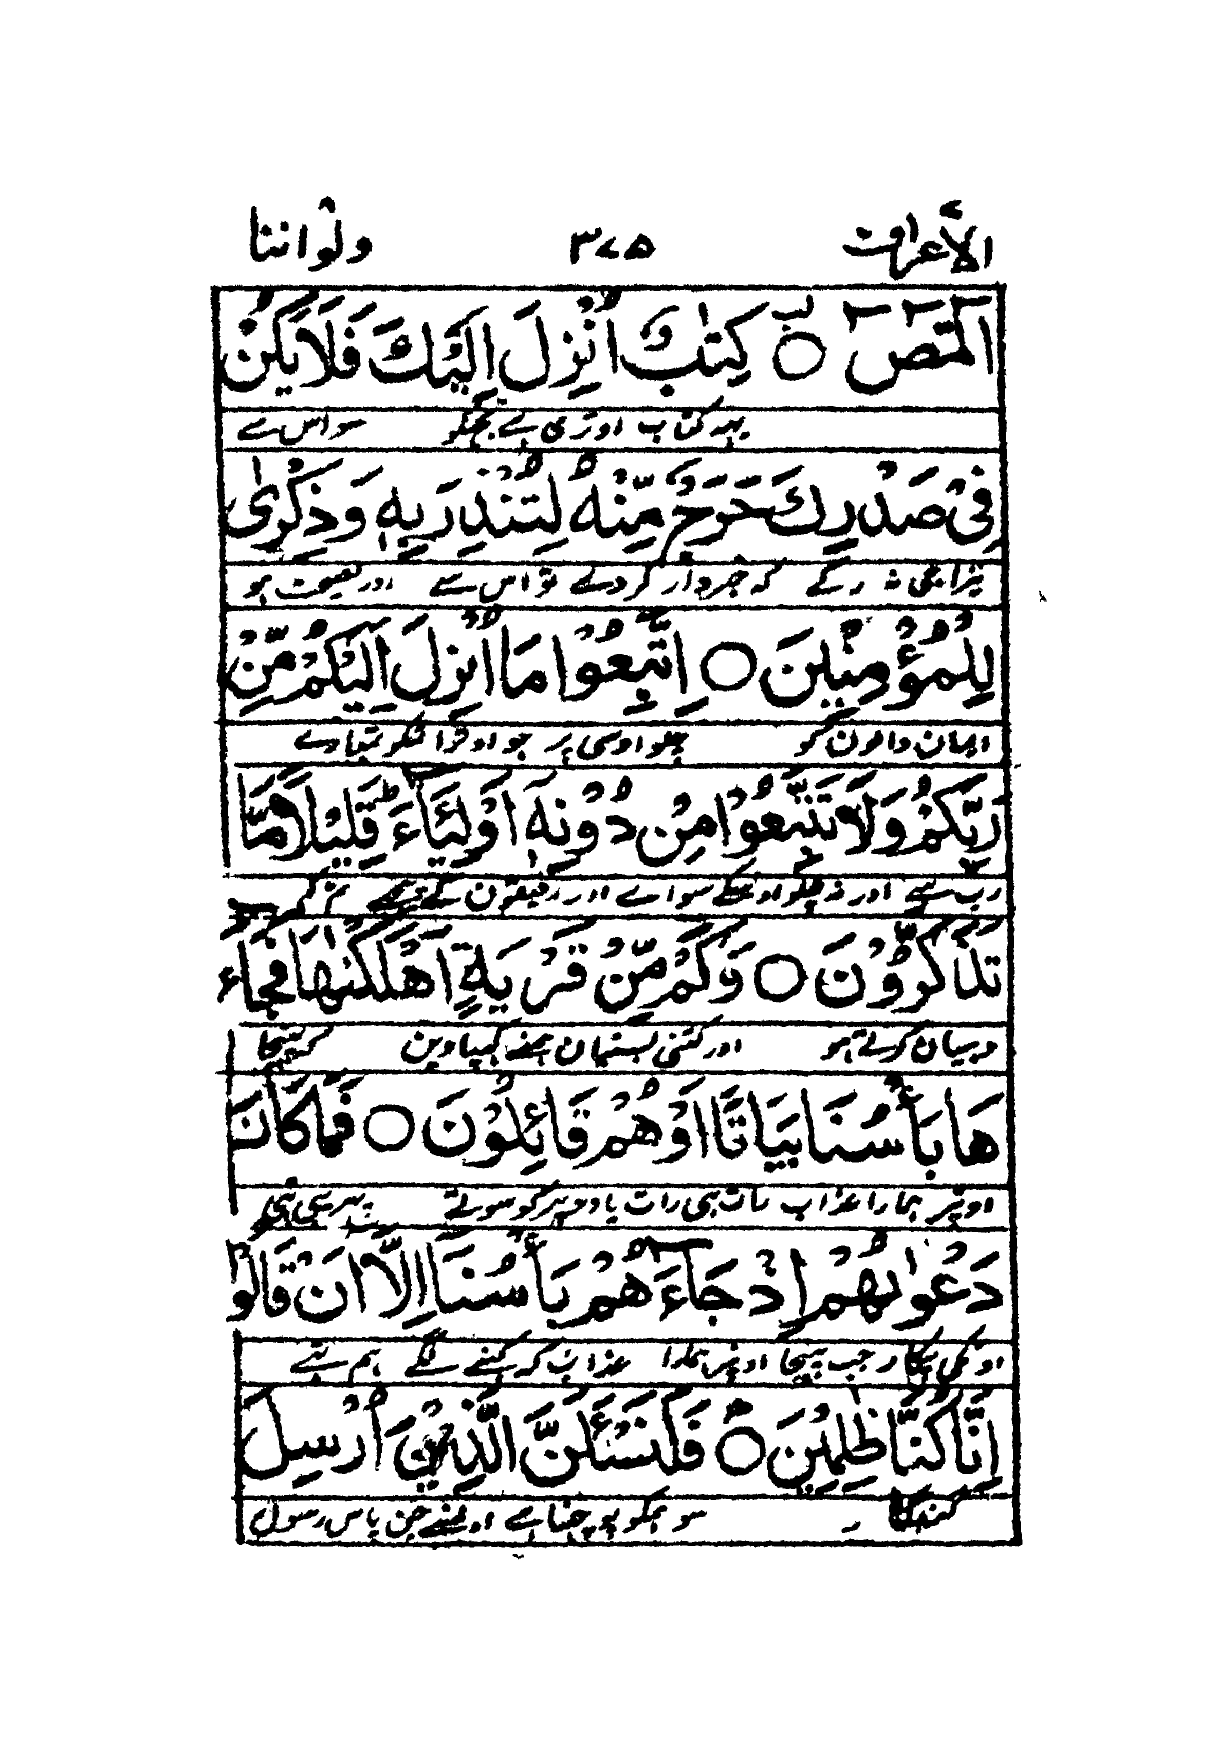 الاعراف ۳۷۵ ولواننا
الٓمّٓصٓ ۝ كِتٰبٌ اُنْزِلَ اِلَيْكَ فَلَا يَكُنْ
یہہ کتاب اوتری ہے تجھکو سو اس سے
فِىْ صَدْرِكَ حَرَجٌ مِّنْهُ لِتُنْذِرَ بِهٖ وَذِكْرٰى
تیرا جی نہ رکے کہ خبردار کردے تو اس سے اور نصیحت ہو
لِلْمُؤْمِنِيْنَ ۝ اِتَّبِعُوْا مَا اُنْزِلَ اِلَيْكُمْ مِّنْ
ایمان والون کو چلو اوسی پر جو اوترا تمکو تمہارے
رَبِّكُمْ وَلَا تَتَّبِعُوْا مِنْ دُوْنِهٖٓ اَوْلِيَآءَ قَلِيْلًا مَّا
رب سے اور نہ چلو اوسکے سواے اور رفیقون کے پیچھے تم کم
تَذَكَّرُوْنَ ۝ وَكَمْ مِّنْ قَرْيَةٍ اَهْلَكْنٰهَا فَجَآءَ
دہیان کرتے ہو اور کتنی بستیان ہمنے کھپا دین کہ پہنچا
هَا بَأْسُنَا بَيَاتًا اَوْ هُمْ قَآئِلُوْنَ ۝ فَمَا كَانَ
اونپر ہمارا عذاب رات ہی رات یا دوپہر کو سوتے پہر یہی تہی
دَعْوٰىهُمْ اِذْ جَآءَهُمْ بَأْسُنَآ اِلَّآ اَنْ قَالُوْٓا
اونکی پکار جب پہنچا اونپر ہمارا عذاب کہ کہنے لگے ہم تہے
اِنَّا كُنَّا ظٰلِمِيْنَ ۝ فَلَنَسْـَٔلَنَّ الَّذِيْنَ اُرْسِلَ
گنہگار سو ہمکو پوچہنا ہے اونسے جن پاس رسول